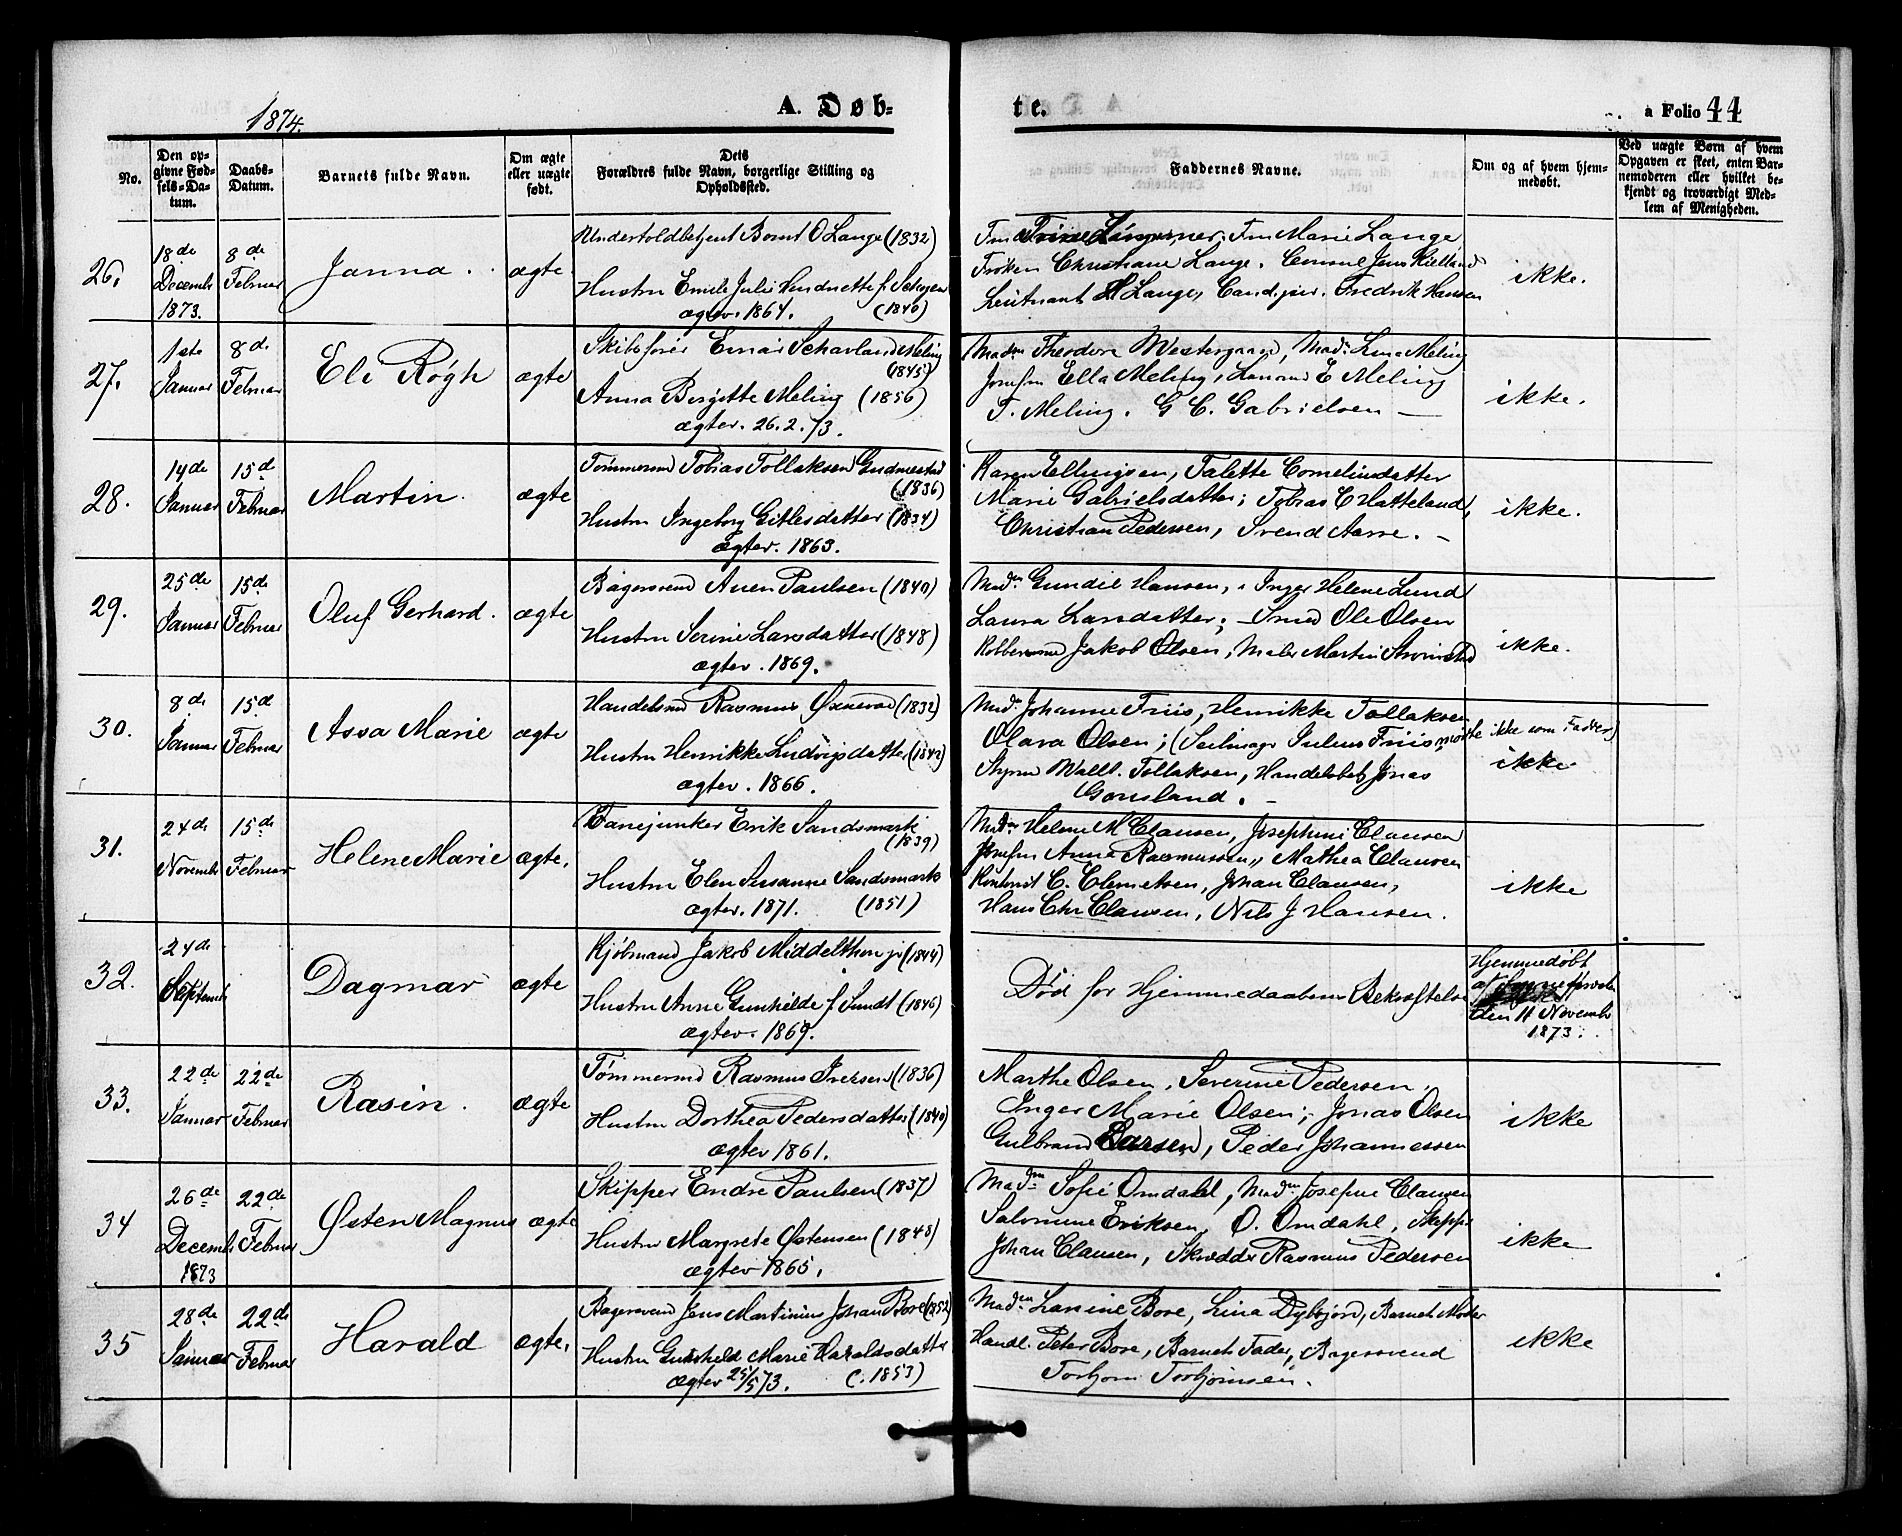 1874.
A. Døb-
te.
a Folio 44
No.
Den op-
givne Fød-
sels-Da-
tum.
Daabs-
Datum.
Barnets fulde Navn.
Om ægte
eller uægte
født.
Dets
Forældres fulde Navn, borgerlige Stilling og
Opholdssted.
Faddernes Navne.
Om og af hvem hjem-
medøbt.
Ved uægte Børn af hvem
Opgaven er skeet, enten Bar-
nemoderen eller hvilket be-
kjendt og troværdigt Med-
lem af Menigheden.
26.
18de
Decembr
1873.
8de
Februar
Janna.
ægte
Undertoldbetjent Bernt O Lange (1832)
Hustru Emile Julie Hendriette f.
ægtev. 1864. (1840)
Fru Marie Lange
Frøken Christiane Lange. Consul Jens Kielland
Lieutnant H Lange, Cand. jur. Fredrik Hansen
ikke.
27.
1ste
Januar
8de
Februar
Eli Røgh
ægte
Skibsfører Einar Scharland Meling
(1845)
Anna Birgitte Meling (1856)
ægtev. 26.2.73.
Madm Theodora Westergaard, Mad. Lina Meling
Jomfru Ella Meling, E Meling
T. Meling. G C. Gabrielsen —
ikke.
28.
14de
Januar
15d
Februar
Martin.
ægte
Tømmermd Tobias Tollaksen Gudmestad
(1836)
Hustru Ingeborg Gitlesdatter (1834)
Ægtev. 1863.
Karen Ellingsen, Talette Corneliusdatter
Marie Gabrielsdatter; Tobias C Hatteland,
Christian Pedersen, Svend Aarre. —
ikke.
29.
25de
Januar
15de
Februar
Oluf Gerhard.
ægte
Bagersvend Aven Paulsen (1840)
Hustru Serine Larsdatter (1848)
ægtev. 1869.
Madm Gundil Hansen, Inger Helene Lund
Laura Larsdatter; Smed Ole Olsen
Jakob Olsen, Maler Martin
ikke.
30.
8de
Januar
15d
Februar
Assa Marie
ægte
Handelsmd Rasmus Øxnevad (1832)
Hustru Henrikke Ludvigsdatter (1842)
ægtev. 1866.
Mad. Johanne Friis, Henrikke Tollaksen
Olava Olsen; (Seilmager Julius Friis mødte ikke som Fadder)
Styrm Wall. Tollaksen, Handelsbetj Jonas
Gausland. —
ikke
31.
24de
Novembr
15de
Februar
Helene Marie
ægte.
Fanejunker Erik Sandsmark
(1839)
Hustru Elen Susanne Sandsmark
ægtev. 1871. (1851)
Madm Helene M Clausen, Josephine Clausen
Jomfru Anne Rasmussen, Mathea Clausen
C. Clemetsen, Johan Clausen,
Hans Chr Clausen, Nils J Hansen.
ikke
32.
24de
Septemb
Dagmar
ægte
Kjøbmand Jakob Middelthon jr (1844)
Hustru Anne Gunhilde f. Sundt (1846)
ægtev. 1869.
Død før Hjemmedaabens Bekræftelse
Hjemmedøbt
af
den 11 Novembr
1873.
33.
22de
Januar
22de
Februar
Rasin.
ægte
Tømmermd Rasmus Iversen (1836)
Hustru Dorthea Pedersdatter (1840)
ægtev 1861.
Marthe Olsen, Severine Pedersen.
Inger Marie Olsen; Jonas Olsen
Gulbrand Larsen, Peder Johannessen
ikke
34
26de
Decemb
1873
22de
Februar
Østen Magnus
ægte
Skipper Endre Paulsen (1837)
Hustru Margrete Østensen (1840)
ægtev 1865.
Madm Sofie Omdahl, Madm Josefine Clausen
Salomine Eriksen, O. Omdahl, Skipper
Johan Clausen, Skrædder Rasmus Pedersen
ikke
35
28de
Januar
22de
Februar
Harald
ægte.
Bagersvend Jens Martinius Johan Bore (1852)
Hustru Gunhild Marie Haraldsdatter
ægtev 25/5 73. (1853)
Madm Larsine Bore, Lina Dybfjord, Barnets Moder
Handl. Peter Bore, Barnets Fader, Bagersvend
Torbjørn Torbjørnsen.
ikke